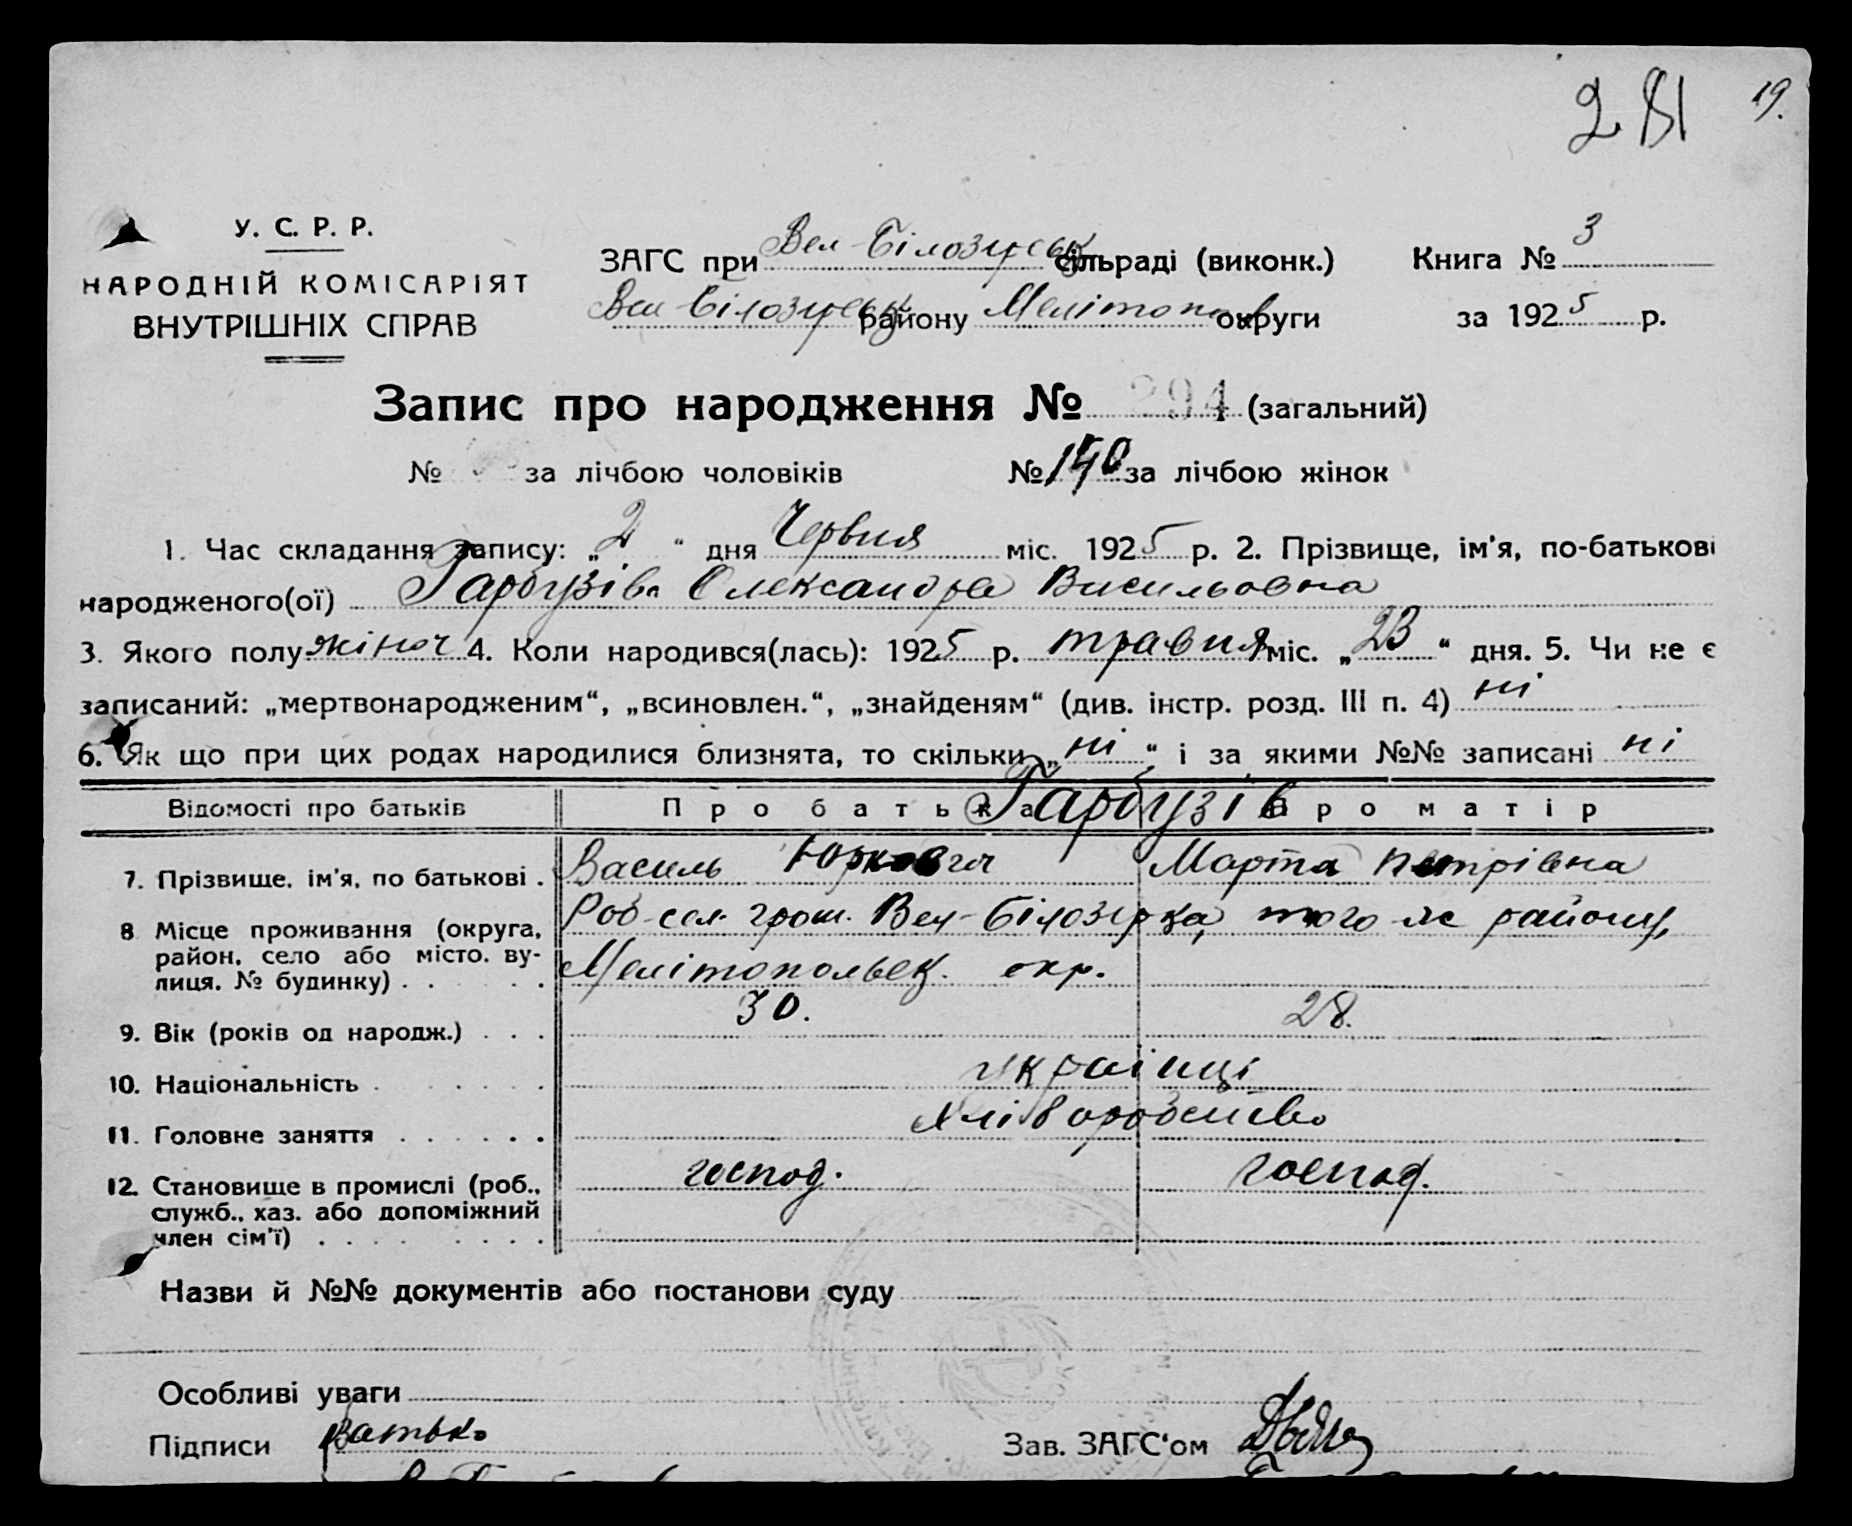 281 19.
У. С. Р. Р.
НАРОДНІЙ КОМІСАРІЯТ
ВНУТРІШНІХ СПРАВ
ЗАГС при Вел-Білозірськ сільраді (виконк.) Книга № 3
Вел Білозірськ району Мелітопол округи за 1925 р.
Запис про народження № 294 (загальний)
№ за лічбою чоловіків № 140 за лічбою жінок
1. Час складання запису: „2“ дня Червня міс. 1925 р. 2. Прізвище, ім'я, по-батькові
народженого(ої) Гарбузів Олександра Васильовна
3. Якого полу жіноч 4. Коли народився(лась): 1925 р. травня міс. „23“ дня. 5. Чи не є
записаний: „мертвонародженим“, „всиновлен.“, „знайденям“ (див. інстр. розд. III п. 4) ні
6. Як що при цих родах народилися близнята, то скільки „ні“ і за якими №№ записані ні
Відомості про батьків Про батька Гарбузів Про матір
7. Прізвище, ім'я, по батькові . Василь Юркович Марта Петрівна
8 Місце проживання (округа, Роб-сел. гром. Вел-Білозірка, того ж району,
район, село або місто, ву- Мелітопольськ. окр.
лиця, № будинку) . . . . .
9. Вік (років од народж.) . . . 30. 28.
10. Національність . . . . . українці
11. Головне заняття . . . . . . хліборобство
12. Становище в промислі (роб., господ. господ.
служб., хаз. або допоміжний
член сім'ї) . . . . . . . . .
Назви й №№ документів або постанови суду
Особливі уваги
Підписи Батько Зав. ЗАГС'ом